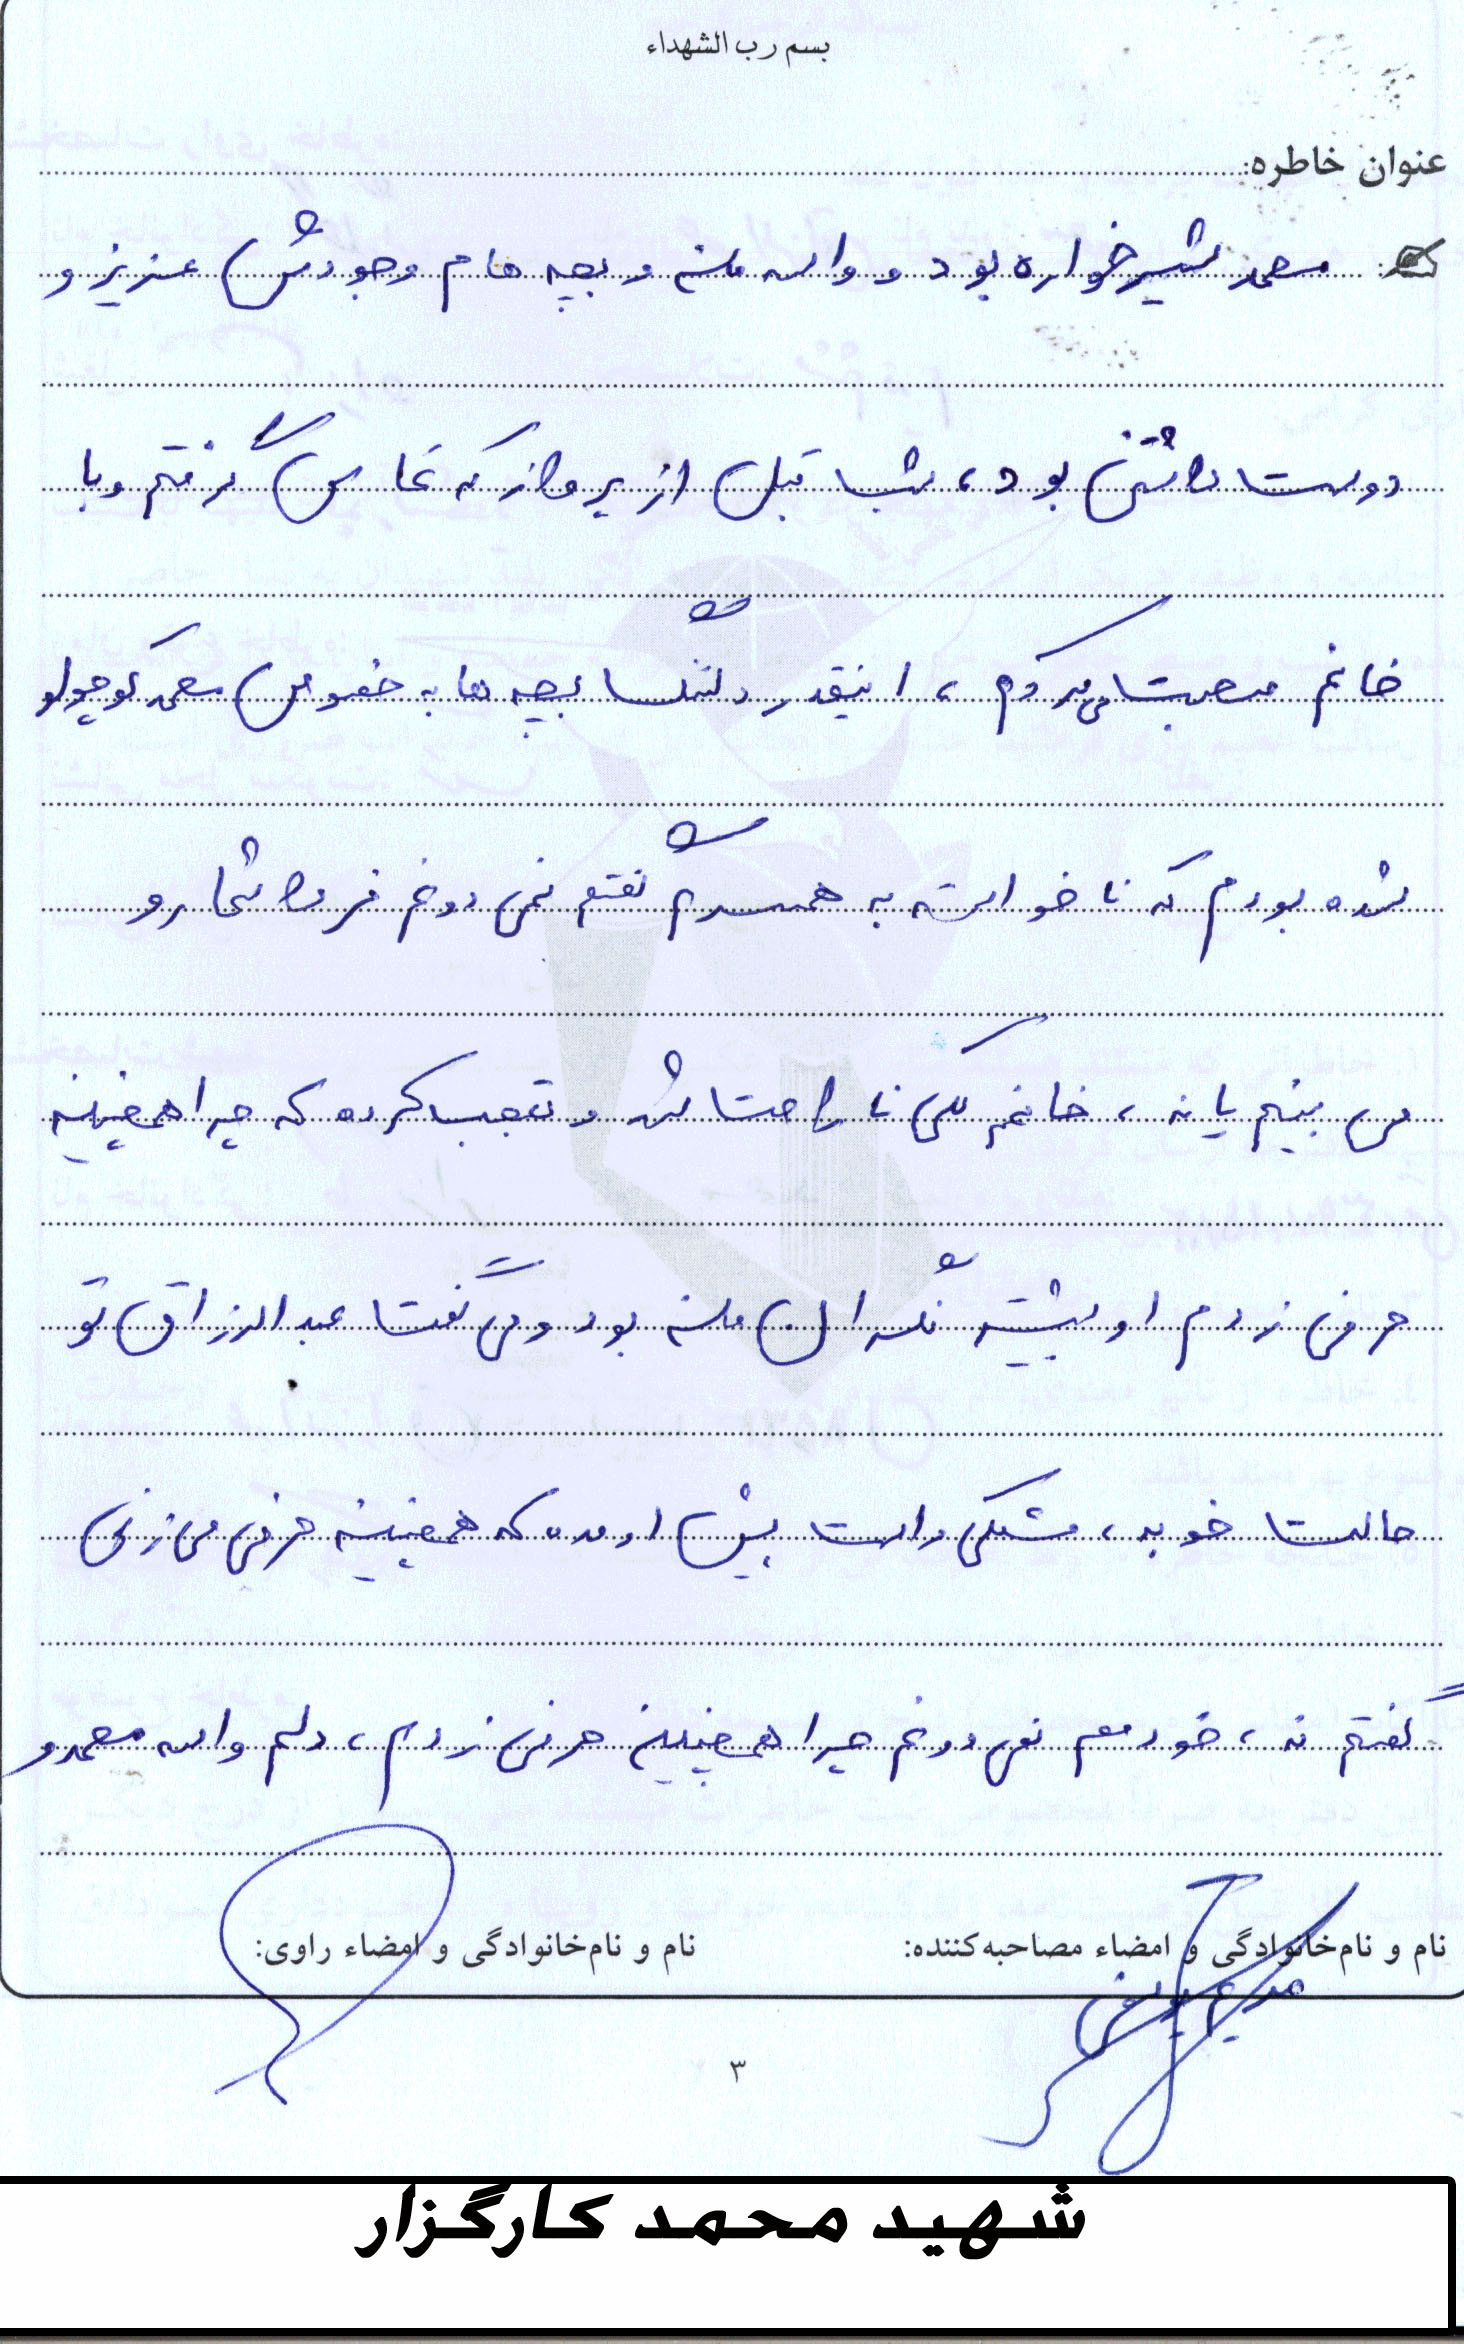 بسم رب الشهداء
عنوان خاطره:
محمد شیرخواره بود و واسه منه و بچه هام وجودش عزیز و
دوست داشتنی بود، شب قبل از پرواز که تماس گرفتم و با
خانم صحبت می‌کردم، اینقدر دلتنگ بچه ها به خصوص محمد کوچولو
شده بودم که نا خواسته به همسرم گفتم نمی دونم فردا شما رو
می بینم یا نه، خانم کلی نا راحت شد و تعجب کرده که چرا همچنین
حرفی زدم او بیشتر نگران منه بود و می گفت عبدالرزاق تو
حالت خوبه، مشکلی واست پیش اومده که همچنین حرفی می زنی
گفتم نه، خودمم نمی دونم چرا همچنین حرفی زدم، دلم واسه محمد و
نام و نام‌خانوادگی و امضاء مصاحبه‌کننده:
نام و نام‌خانوادگی و امضاء راوی:
مریم
۳
شهید محمد کارگزار